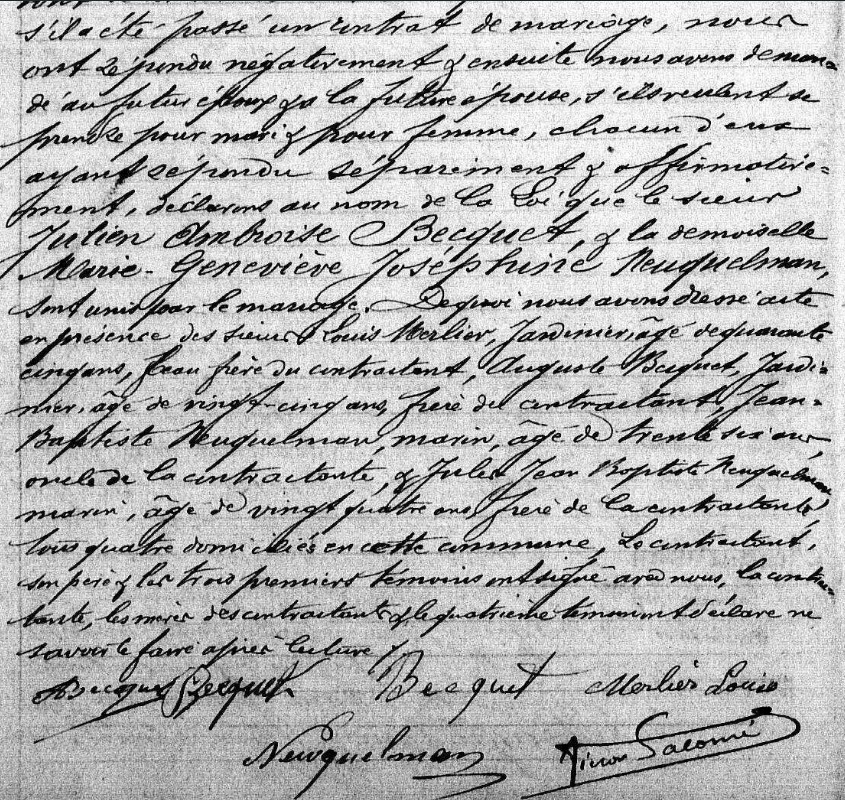 s'il a été passé un contrat de mariage, nous
ont répondu négativement & ensuite nous avons deman-
dé au futur époux & à la future épouse, s'ils veulent se
prendre pour mari & pour femme, chacun d'eux
ayant répondu séparément & affirmative-
ment, déclarons au nom de la Loi que le sieur
Julien Ambroise Becquet, & la demoiselle
Marie-Geneviève Joséphine Neuquelman,
sont unis par le mariage. De quoi nous avons dressé acte
en présence des sieurs Louis Merlier, Jardinier, âgé de quarante
cinq ans, beau frère du contractant, Auguste Becquet, Jardi-
nier, âgé de vingt-cinq ans, frère du contractant, Jean-
Baptiste Neuquelman, marin, âgé de trente six ans,
oncle de la contractante, & Jules Jean Baptiste Neuquelman
marin, âgé de vingt quatre ans, frère de la contractante,
tous quatre domiciliés en cette commune, Le contractant,
son père & les trois premiers témoins ont signé avec nous, la contrac-
tante, les mères des contractants & le quatrième témoin ont déclaré ne
savoir le faire après lecture /
Becquet Becquet Merlier Louis
Neuquelman Salomé